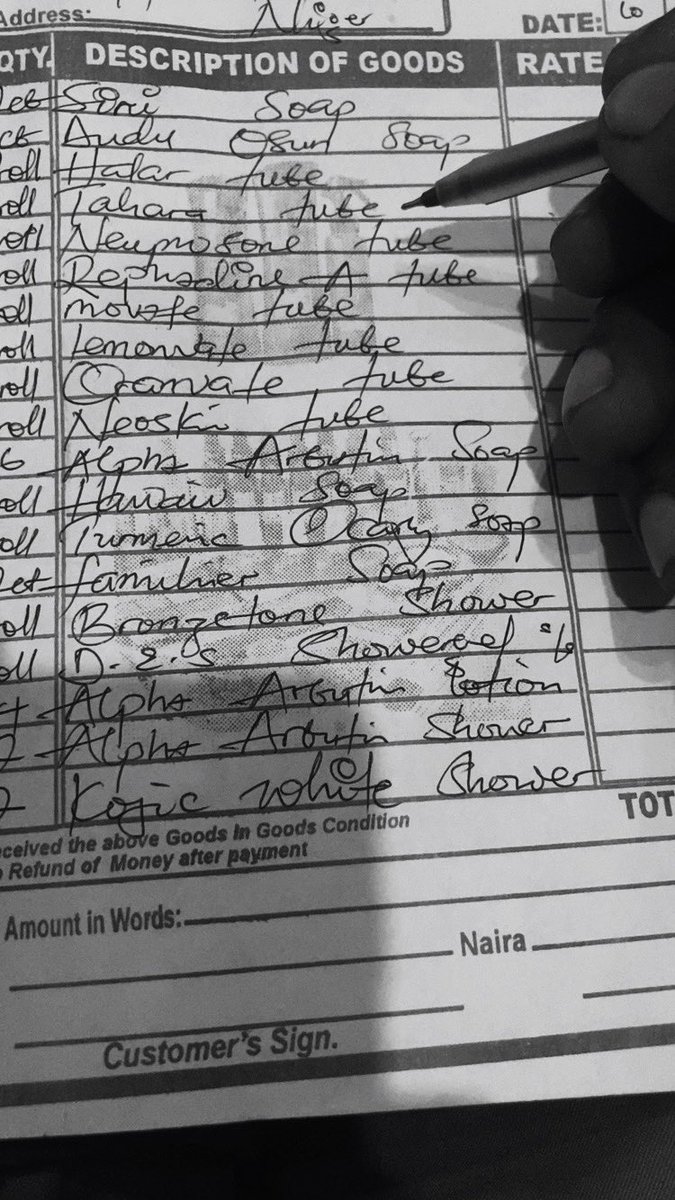 Address: Niger DATE: 60
QTY. DESCRIPTION OF GOODS RATE
Siri Soap
Audu Osun Soap
roll Halar tube
roll Tahara tube
roll Neuprosone tube
roll Dephasoline A tube
roll movate tube
roll Lemonvate tube
roll Oranvate tube
roll Neoskin tube
6 Alpha Arbutin Soap
roll Hawaiu Soap
roll Turmeric Ocary Soap
familuer Soap
roll Bronzetone Shower
roll D.2.S Showergel
Alpha Arbutin Lotion
2 Alpha Arbutin Shower
2 Kojic white Shower
TOT
eceived the above Goods In Goods Condition
o Refund of Money after payment
Amount in Words:
Naira
Customer's Sign.